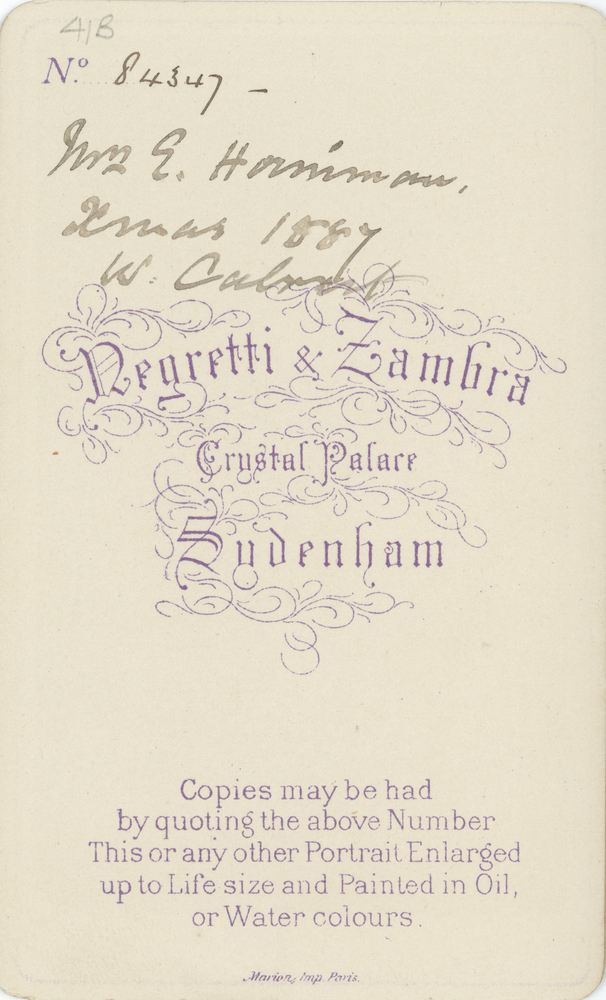 41B
No. 84347 -
Mrs E. Horniman,
Xmas 1887
W. Calvert
Negretti & Zambra
Crystal Palace
Sydenham
Copies may be had
by quoting the above Number
This or any other Portrait Enlarged
up to Life size and Painted in Oil,
or Water colours.
Marion, Imp. Paris.